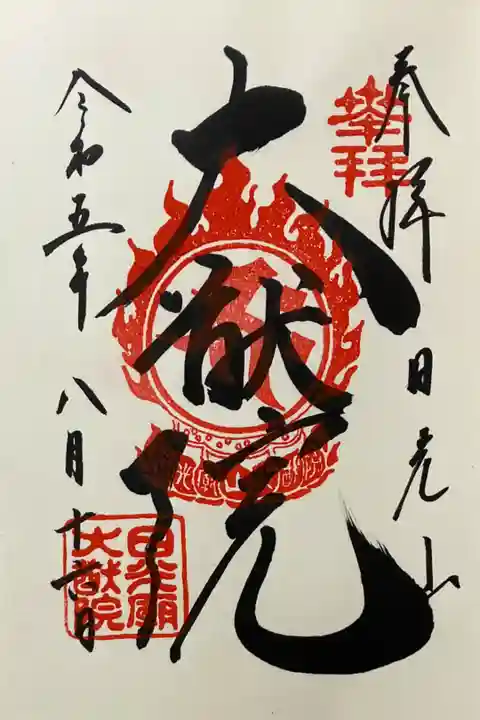 奉拝
日光山
奉拝
大猷院
令和五年
八月十六日
日光廟
大猷院